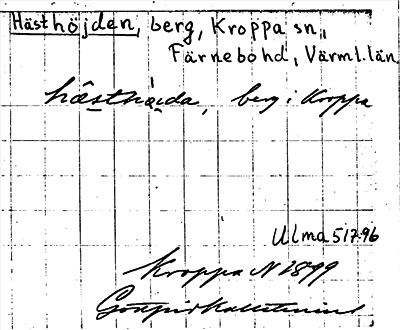 Hästhöjden, berg, Kroppa sn,
Färnebo hd, Värml. län
hästhöjda, berg i Kroppa
Ulma 517:96
Kroppa N 1899
Gottfrid Kallstenius